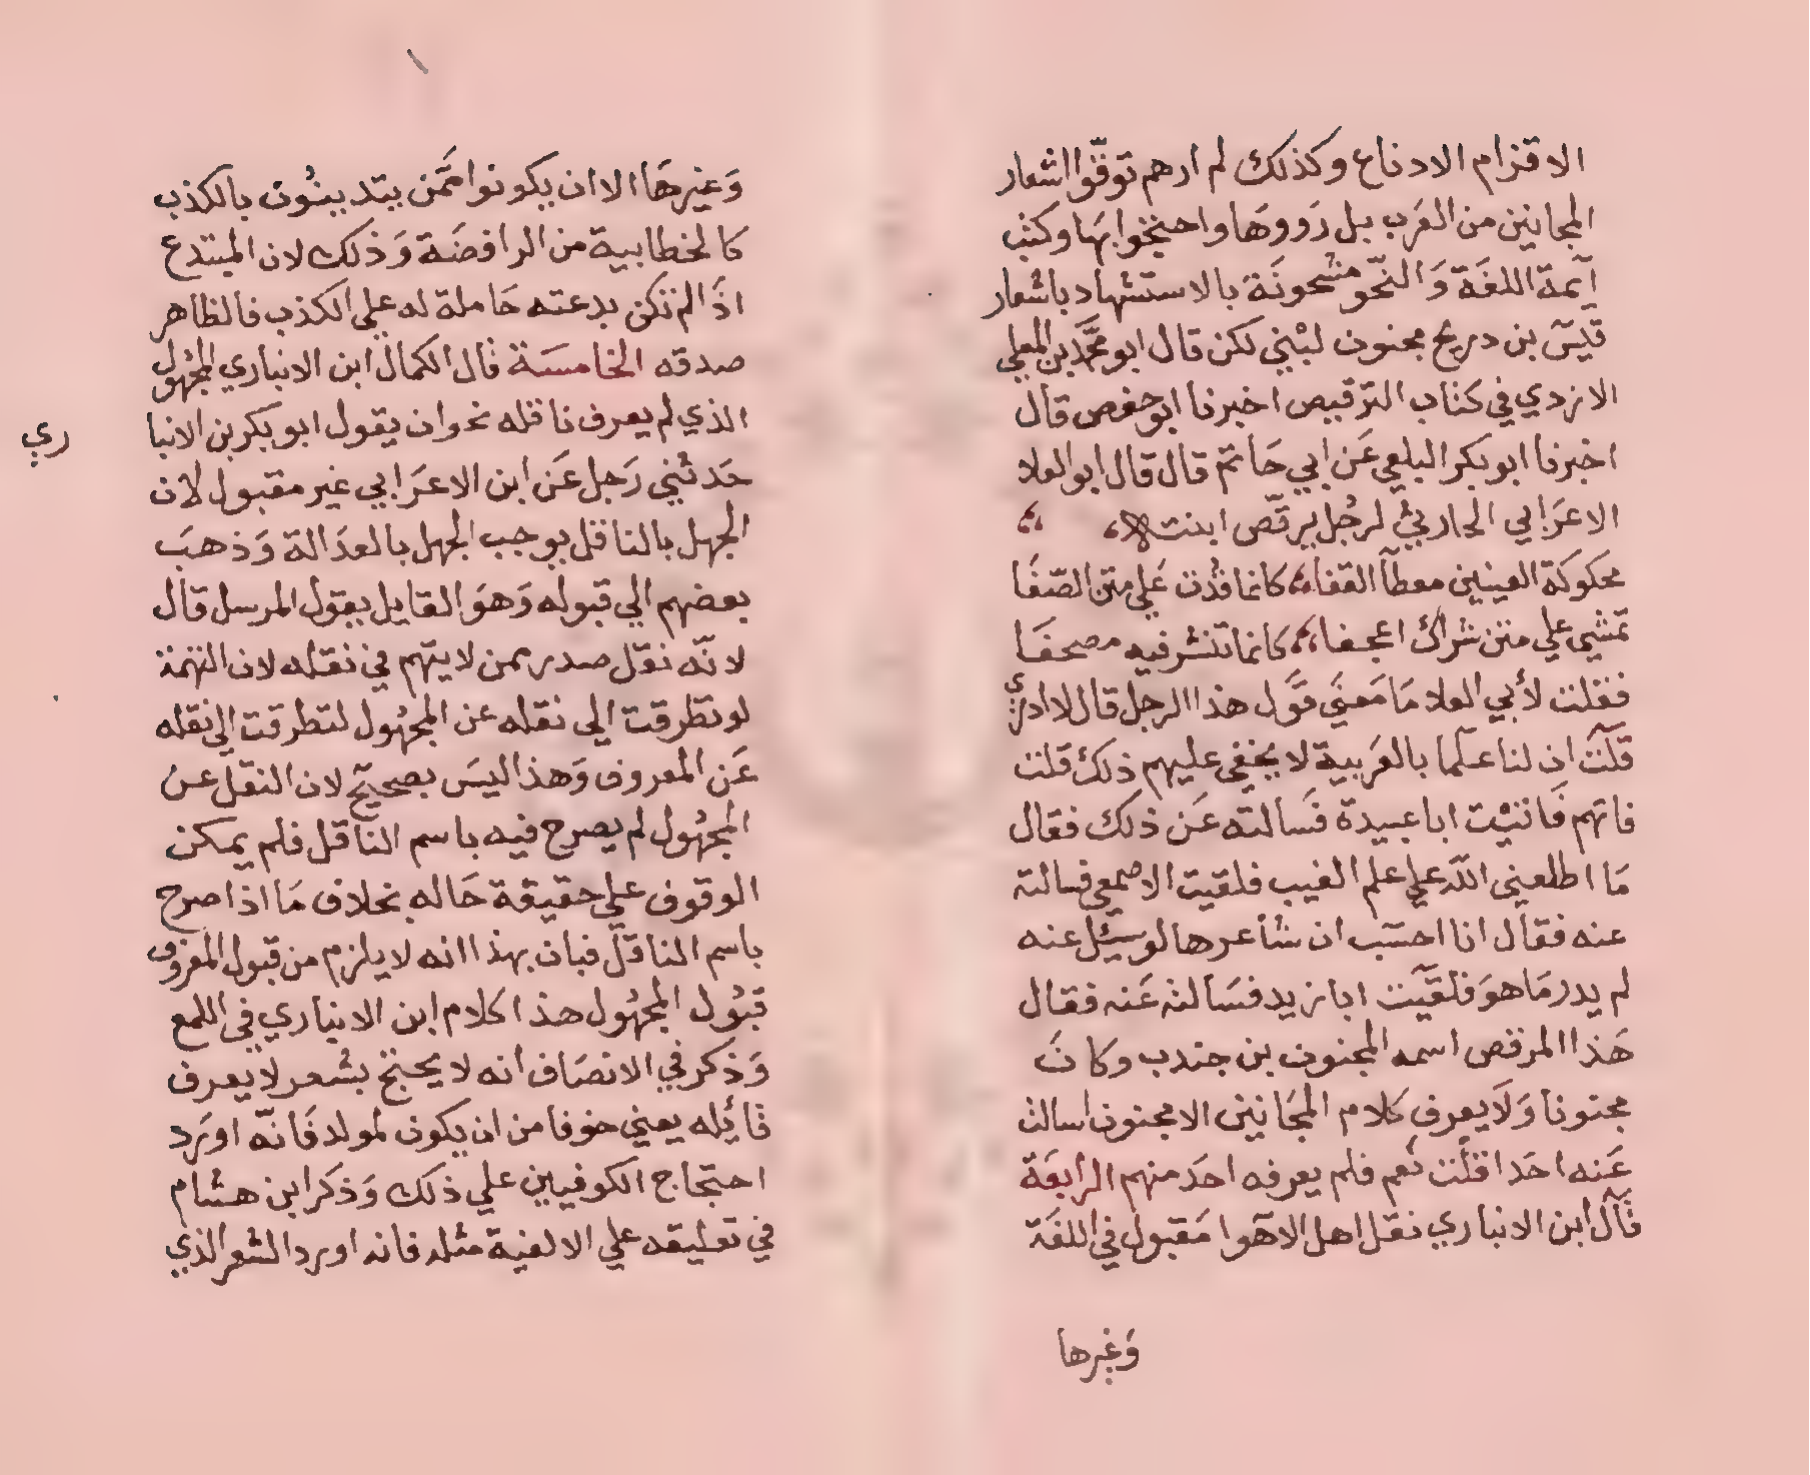 الاقزام الادناع وكذلك لم ارهم توقّوا اشعار
المجانين من العَرب بل رَووهَا واحتجّوا بهَا وكتب
آيمة اللغَة وَالنّحو مشحونَة بالاستشهاد باشعار
قيس بن دريح مجنون لبْني لكن قال ابو محَّمد بن المعلي
الازدي في كتاب الترقيص اخبرنا ابو حفص قال
اخبرنا ابو بكر البلعي عَن ابي حَاتم قال قال ابو العلا
الاعرَابي الحارثي لرجُل يرقّص ابنته
محكوكة العينين معطآ القفا كانما قُدّت عَلي متن الصّفَا
تمشي علي متن شراك اعجفا كانما تنشر فيه مصحفَا
فقلت لأبي العلا مَا مَعنَي قَول هذا الرجل قال لا ادري
قلت ان لنا علما بالعَربية لا يخفي عليهم ذلك قلت
فاتهم فَاتيْت ابا عبيدة فسَالته عَن ذلك فقال
مَا اطلعني اللّه علي علم الغيب فلقيت الاصمعي فسالته
عنه فقال انا احسَب ان شأعرها لو سيُل عنه
لم يدر مَا هوَ فلقيت ابا زيد فسَالته عَنه فقال
هَذا المرقص اسمه المجنون بن جندب وكانَ
مجنونا وَلَا يعرف كلام المجَانين الا مجنون اسالت
عَنه احَدا قلت نَعم فلم يعرفه احَد منهم الرابعَة
قَال ابن الانباري نقل اهل الاهوا مَقبول في اللغَة
وَغيرها
وَغيرهَا الا ان يكونوا ممَّن يتدينُون بالكذب
كالخطابية من الرافضَة وَذلك لان المبتدع
اذَا لم تكن بدعته حَاملة له علي الكذب فالظاهر
صدقه الخامسَة قال الكمال ابن الانباري المجهُول
الذي لم يعرف ناقله نحو ان يقول ابو بكر بن الانبا
ري
حَدثني رَجل عَن ابن الاعرَابي غير مقبول لان
الجهل بالناقل يوجب الجهل بالعدَالة وَذهبَ
بعضهم الي قبوله وَهوَ القايل بقول المرسل قال
لانّه نقل صدر ممن لا يتهم في نقله لان التهمة
لو تطرقت الي نقله عن المجهُول لتطرقت الي نقله
عَن المعروف وَهذا ليسَ بصحيح لان النقل عن
المجهُول لم يصرح فيه باسم الناقل فلم يمكن
الوقوف علي حقيقة حَاله بخلاف مَا اذا صرح
باسم الناقل فبان بهذا انه لا يلزم من قبول المعروف
قبُول المجهُول هذا كلام ابن الانباري في اللمع
وَذكر في الانصَاف انه لا يحتج بشعر لا يعرف
قايُله يعني خوفا من ان يكون لمولد فَانّه اورَد
احتجاج الكوفيين علي ذلك وَذكر ابن هشام
في تعليقه علي الالفية مثله فانه اورد الشعر الذي